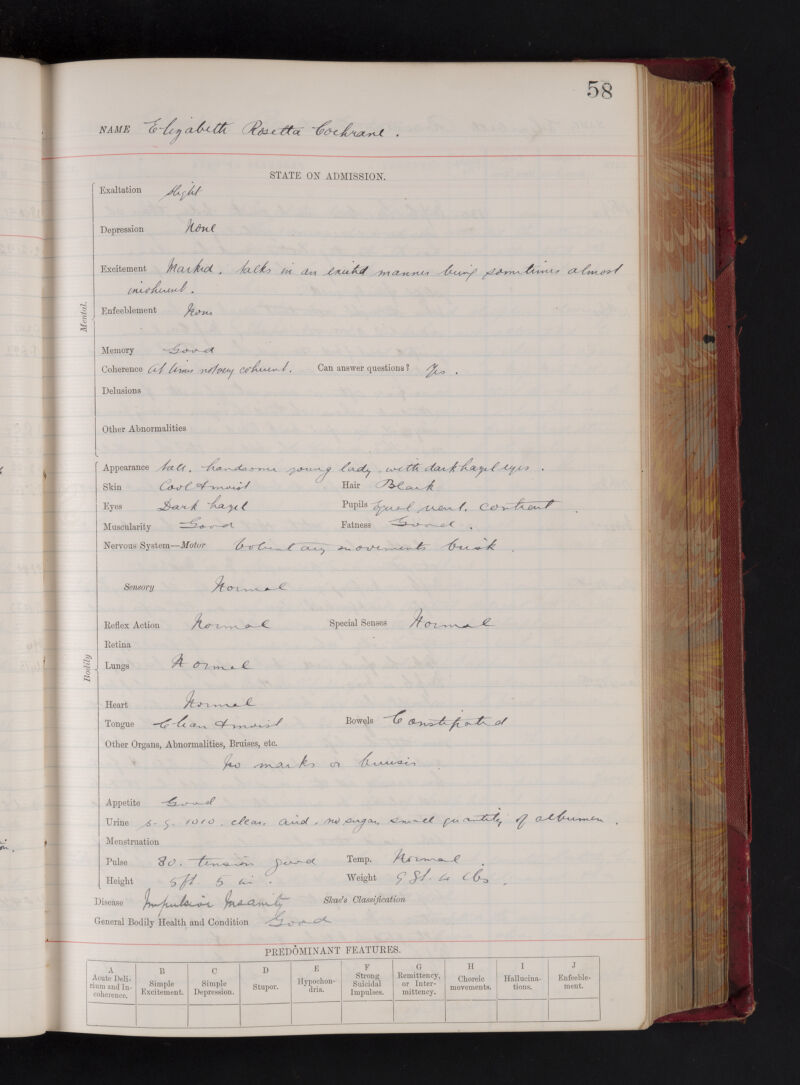 58
NAME Elizabeth Rosetta Cochrane .
STATE ON ADMISSION.
Mental.
Exaltation Slight
Depression None
Excitement Marked . talks in an excited manner being sometimes almost
incoherent .
Enfeeblement None
Memory Good
Coherence At times not very coherent . Can answer questions? Yes .
Delusions
Other Abnormalities
Bodily
Appearance tall, handsome young lady, with dark hazel eyes .
Skin Cool & moist Hair Black
Eyes Dark hazel Pupils Equal, react, contract .
Muscularity Good Fatness Good .
Nervous System—Motor Voluntary movements brisk .
Sensory Normal
Reflex Action Normal Special Senses Normal
Retina
Lungs Normal
Heart Normal
Tongue Clean & moist Bowels Constipated
Other Organs, Abnormalities, Bruises, etc.
No marks or bruises .
Appetite Good
Urine S. G. 1010 . clear, acid, no sugar, small quantity of albumen .
Menstruation
Pulse 80. tension good Temp. Normal .
Height 5ft 5 in . Weight 9 St. lbs .
Disease Impulsive Insanity Skae's Classification
General Bodily Health and Condition Good
PREDOMINANT FEATURES.
A B C D E F G H I J
Acute Deli- Simple Simple Stupor. Hypochon- Strong Remittency, Choreic Hallucina- Enfeeble-
rium and In- Excitement. Depression. dria. Suicidal or Inter- movements. tions. ment.
coherence. Impulses. mittency.